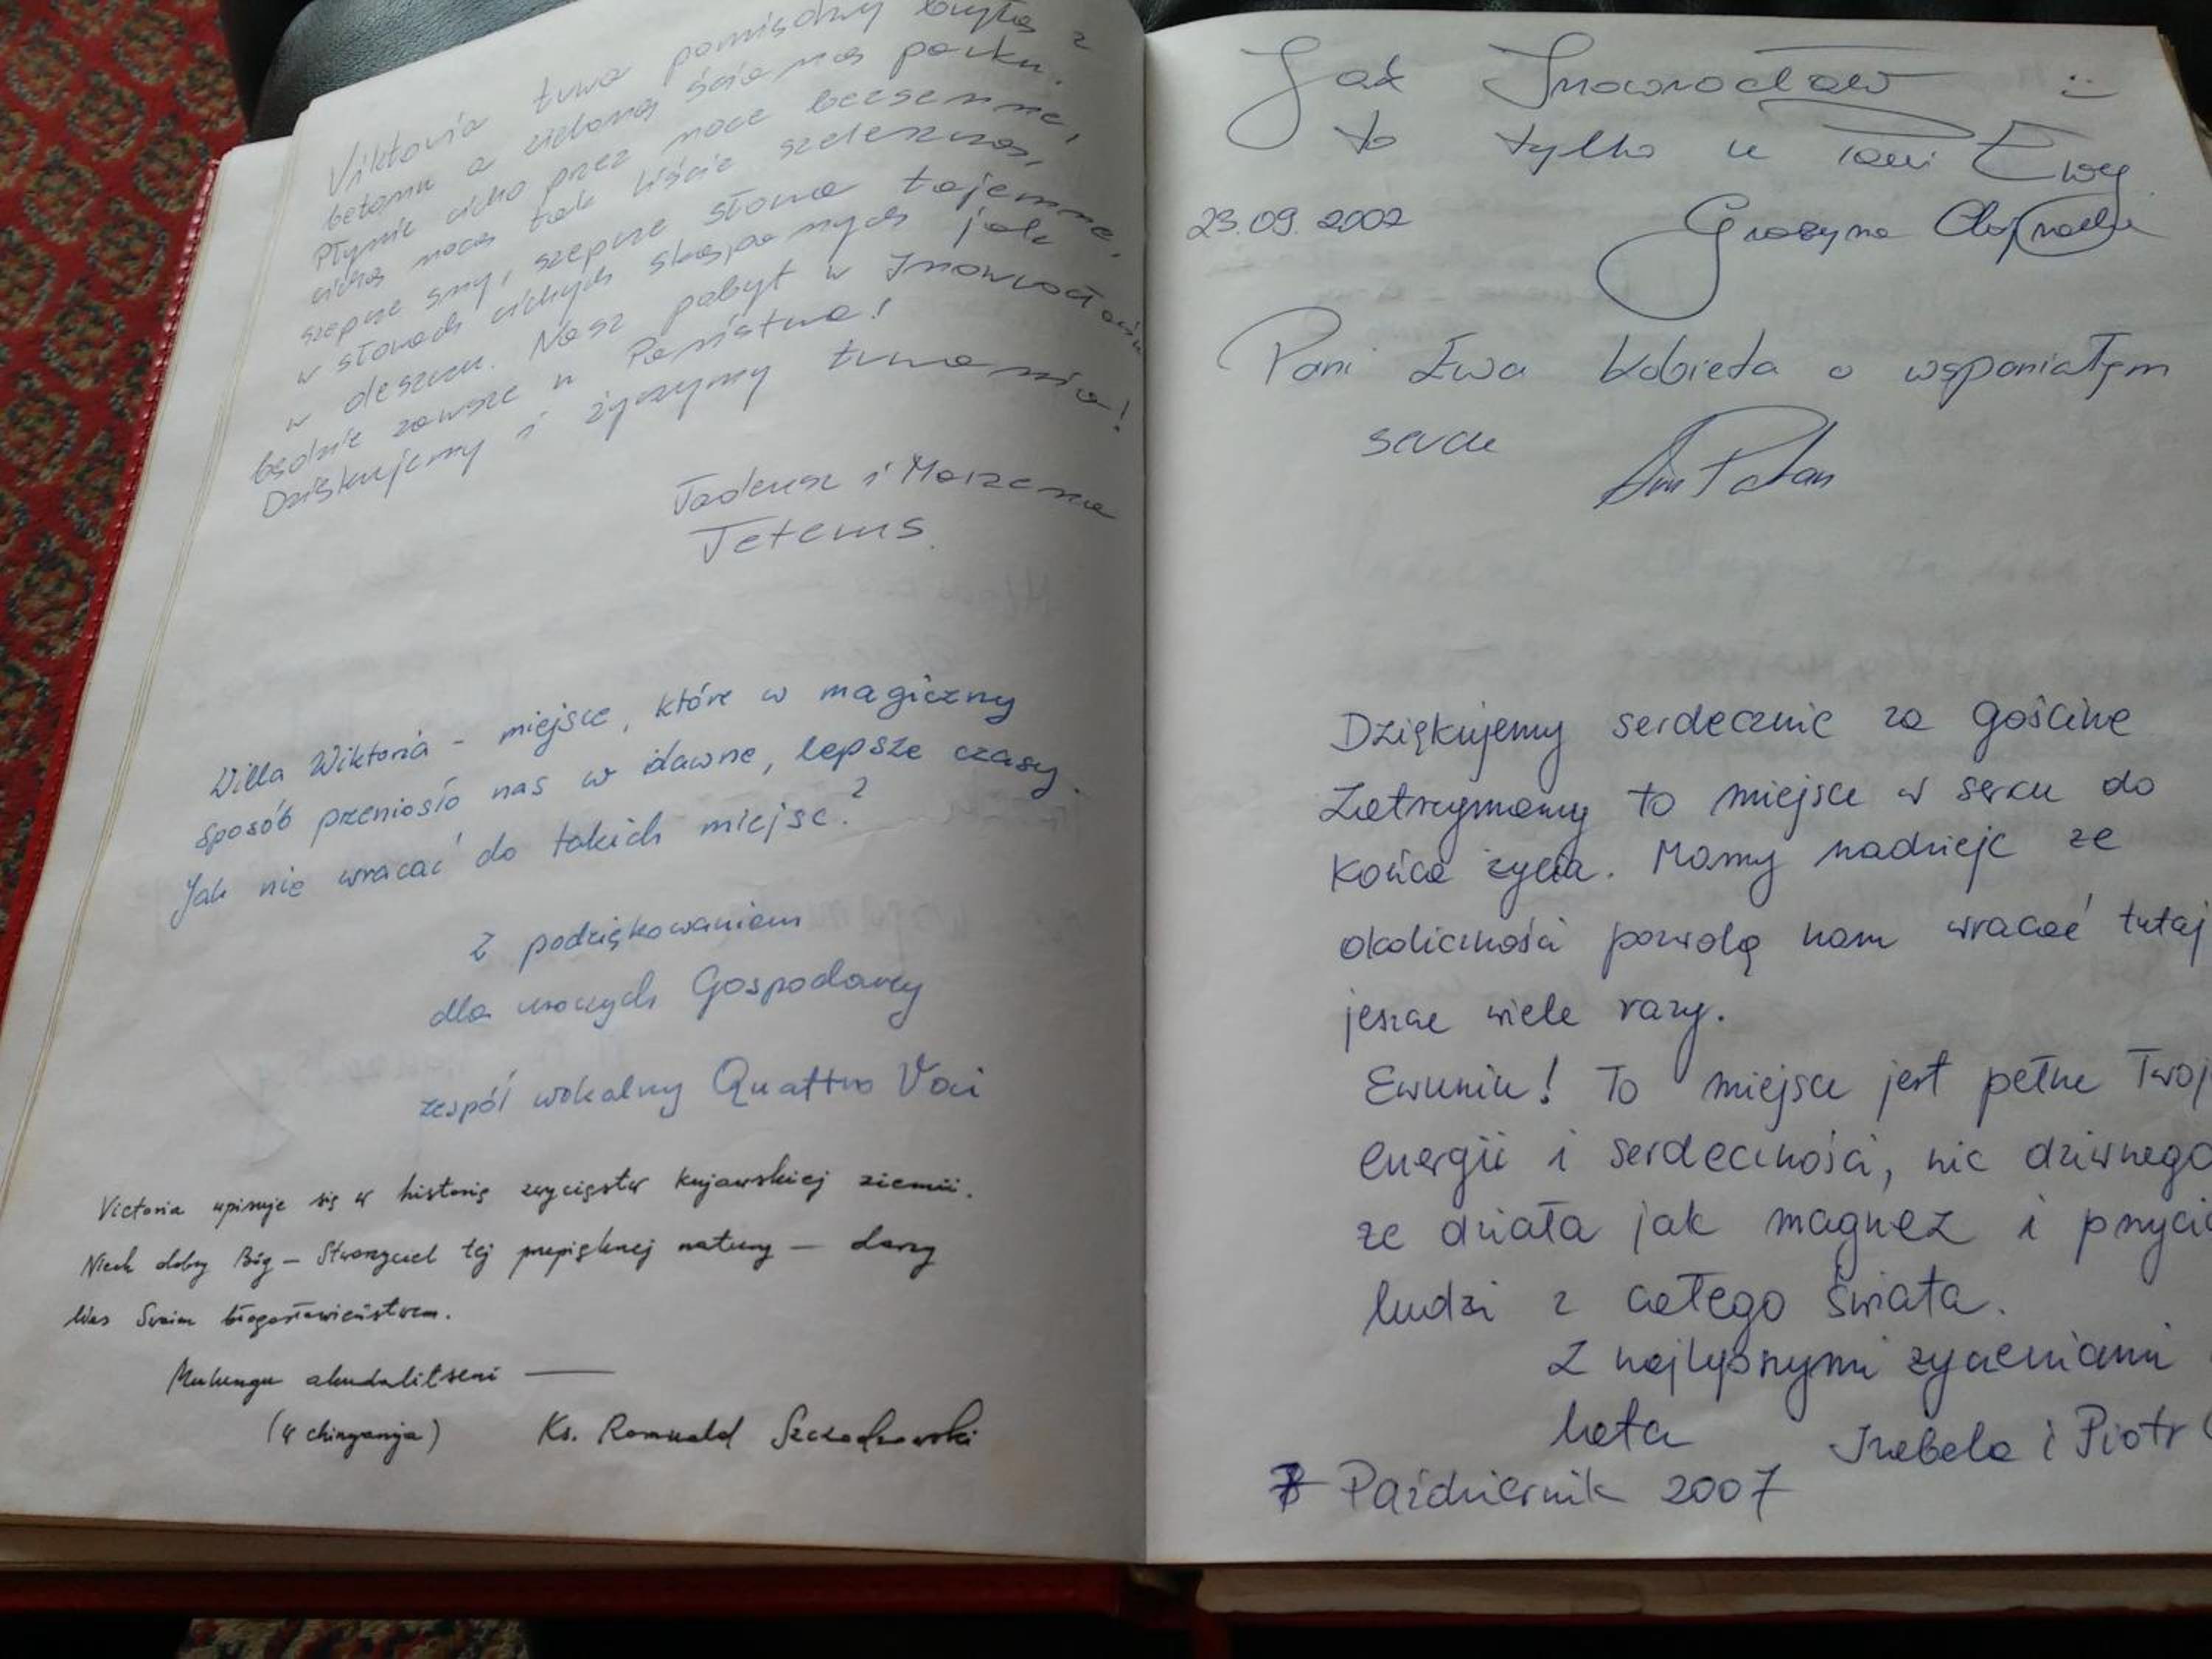 Viktoria trwa pomiędzy bryłą z
betonu a zieloną ścianą parku.
Płynie cicho przez noce bezsenne,
cichą nocą tak liście szeleszczą,
szepcze sny, szepcze słowa tajemne,
w słowach cichych skąpanych jak
w deszczu. Nasz pobyt w Inowrocławiu
będzie zawsze u Państwa!
Dziękujemy i życzymy trwania!
Tadeusz i Marzena
Tetems.
Villa Wiktoria - miejsce, które w magiczny
sposób przeniosło nas w dawne, lepsze czasy.
Jak nie wracać do takich miejsc?
Z podziękowaniem
dla uroczych Gospodarzy
zespół wokalny Quattro Voci
Victoria wpisuje się w historię zwycięstw kujawskiej ziemii.
Niech dobry Bóg – Stworzyciel tej przepięknej natury – darzy
Was Swoim błogosławieństwem.
Mulungu akudalitseni
(w chinyanja) Ks. Romuald Szczodrowski
Jak Inowrocław :-
to tylko u Pani Ewy
23.09.2007 Grażyna
Pani Ewa kobieta o wspaniałym
sercu
Dziękujemy serdecznie za gościnę
Zatrzymamy to miejsce w sercu do
końca życia. Mamy nadzieję ze
okoliczności pozwolą nam wracać tutaj
jeszcze wiele razy.
Ewuniu! To miejsce jest pełne Twoj
energii i serdeczności, nic dziwnego
ze działa jak magnez i przycią
ludzi z całego świata.
Z najlepszymi życzeniami
Izabela i Piotr
Październik 2007